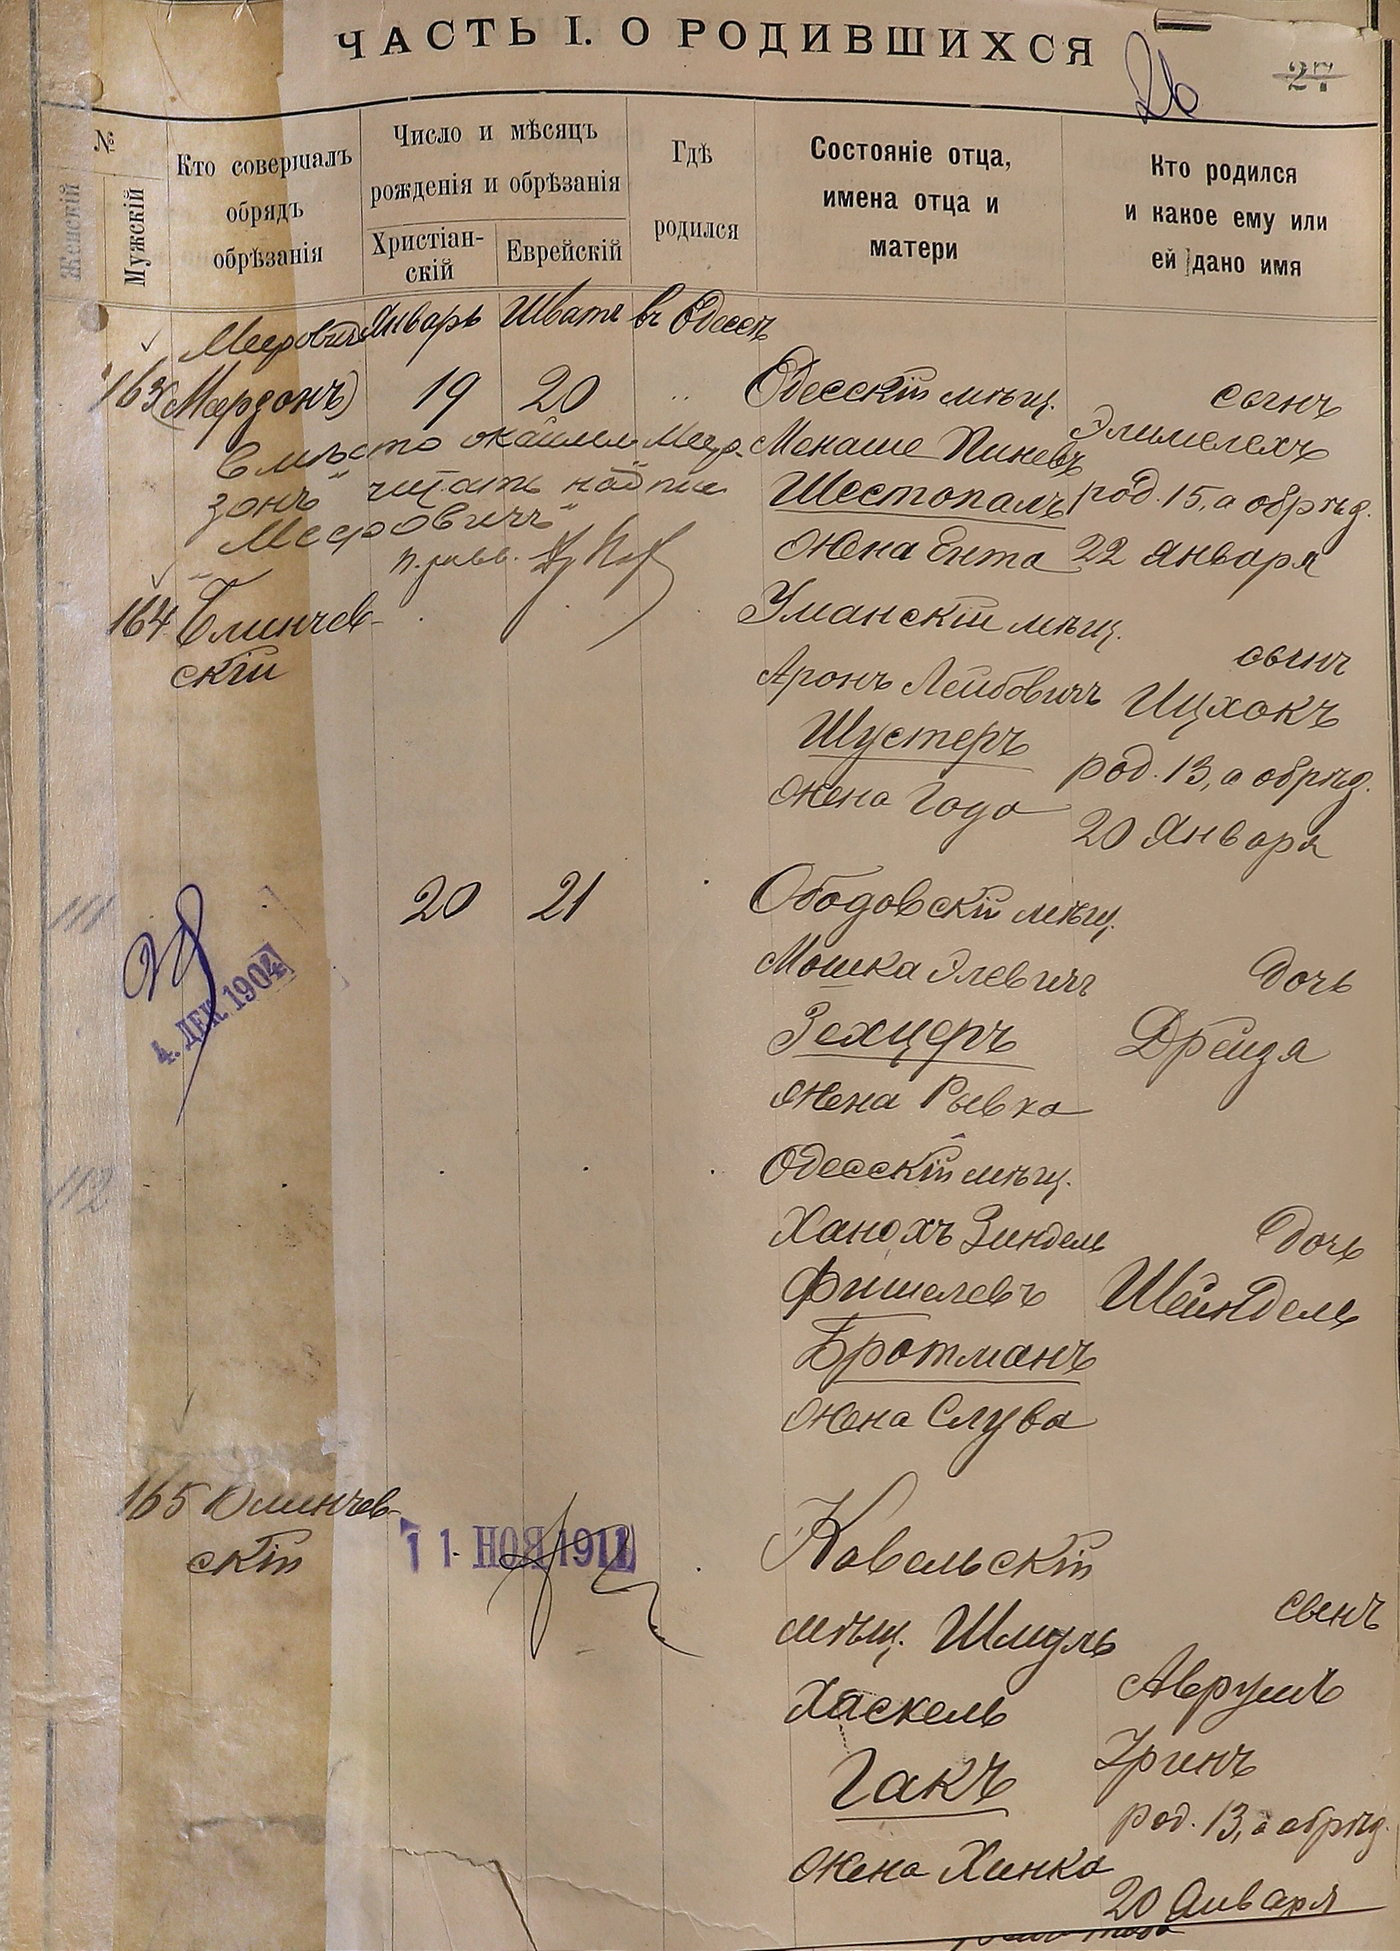 ЧАСТЬ I. О РОДИВШИХСЯ
26
27
№
Женскій
Мужскій
Кто совершалъ
обрядъ
обрѣзанія
Число и мѣсяцъ
рожденія и обрѣзанія
Христіан-
скій
Еврейскій
Гдѣ
родился
Состояніе отца,
имена отца и
матери
Кто родился
и какое ему или
ей дано имя
Мееровичъ Январь Шватъ въ Одессѣ
163 (Меерзонъ) 19 20
Одесскій мѣщ.
Менаше Пиневъ
Шестопалъ
жена Ента
сынъ
Элимелехъ
род. 15, а обрѣз.
22 Января
Вмѣсто
зонъ" читать
"Мееровичъ"
164 Блинчев-
скій
Уманскій мѣщ.
Аронъ Лейбовичъ
Шустеръ
жена Года
сынъ
Ицхокъ
род. 13, а обрѣз.
20 Января
111
20 21
4. ДЕК. 1904
Ободовскій мѣщ.
Мошка Элевичъ
Зехцеръ
жена Рывка
дочь
Дрейзя
112
Одесскій мѣщ.
Ханохъ Зиндель
Фишелевъ
Бротманъ
жена Слува
дочь
Шейндель
165 Блинчев-
скій
11. НОЯ 1911
Ковельскій
мѣщ. Шмуль
Хаскель
Гакъ
жена Хинка
сынъ
Аврумъ
род. 13, а обрѣз.
20 Января